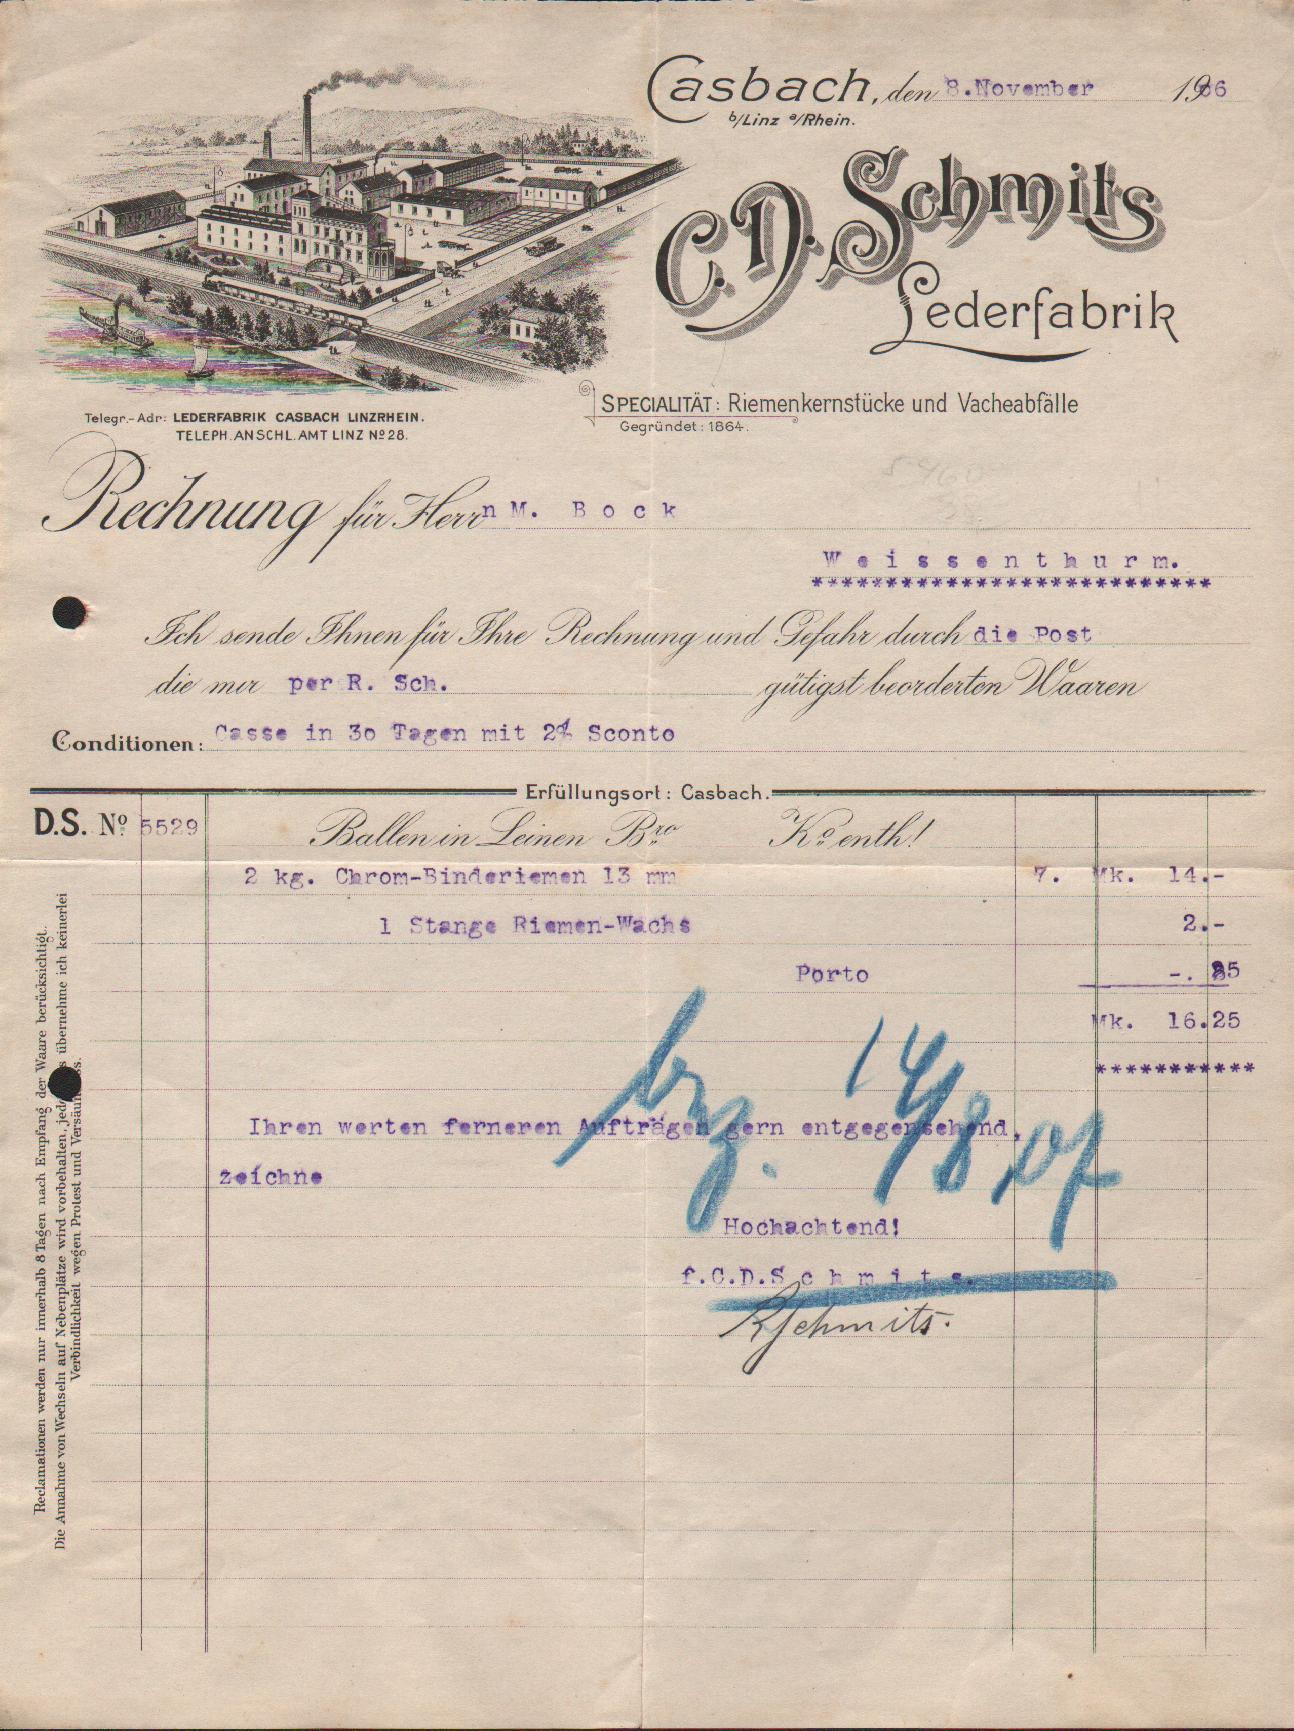 Casbach, den 8.November 1906
b/Linz a/Rhein.
C.D. Schmits
Lederfabrik
SPECIALITÄT: Riemenkernstücke und Vacheabfälle
Gegründet: 1864.
Telegr.-Adr: LEDERFABRIK CASBACH LINZRHEIN.
TELEPH. ANSCHL. AMT LINZ Nº 28.
Rechnung für Herrn M. Bock
Weissenthurm.
**************************
Ich sende Ihnen für Ihre Rechnung und Gefahr durch die Post
die mir per R. Sch. gütigst beorderten Waaren
Conditionen: Casse in 30 Tagen mit 2% Sconto
Erfüllungsort: Casbach.
D.S. Nº 5529 Ballen in Leinen Bro Ko enth!
2 kg. Chrom-Binderiemen 13 mm 7. Mk. 14.-
1 Stange Riemen-Wachs 2.-
Porto -.25
Mk. 16.25
***********
bz. 14/8.07
Ihren werten ferneren Aufträgen gern entgegensehend,
zeichne
Hochachtend!
f.C.D.Schmits.
RSchmits.
Reclamationen werden nur innerhalb 8 Tagen nach Empfang der Waare berücksichtigt.
Die Annahme von Wechseln auf Nebenplätze wird vorbehalten, übernehme ich keinerlei
Verbindlichkeit wegen Protest und